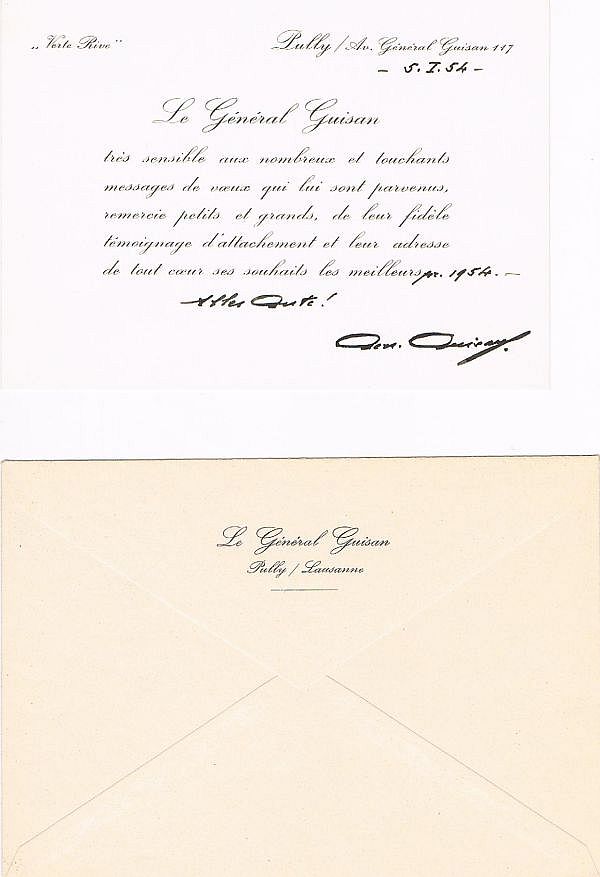 „Verte Rive"
Pully / Av. Général Guisan 117
– 5.I.54 –
Le Général Guisan
très sensible aux nombreux et touchants
messages de vœux qui lui sont parvenus,
remercie petits et grands, de leur fidèle
témoignage d'attachement et leur adresse
de tout cœur ses souhaits les meilleurs pr. 1954. –
Alles Gute!
Gen. Guisan.
Le Général Guisan
Pully / Lausanne